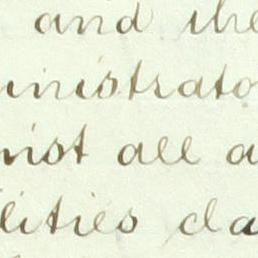 and the
inistrato
inst all a
lities cla